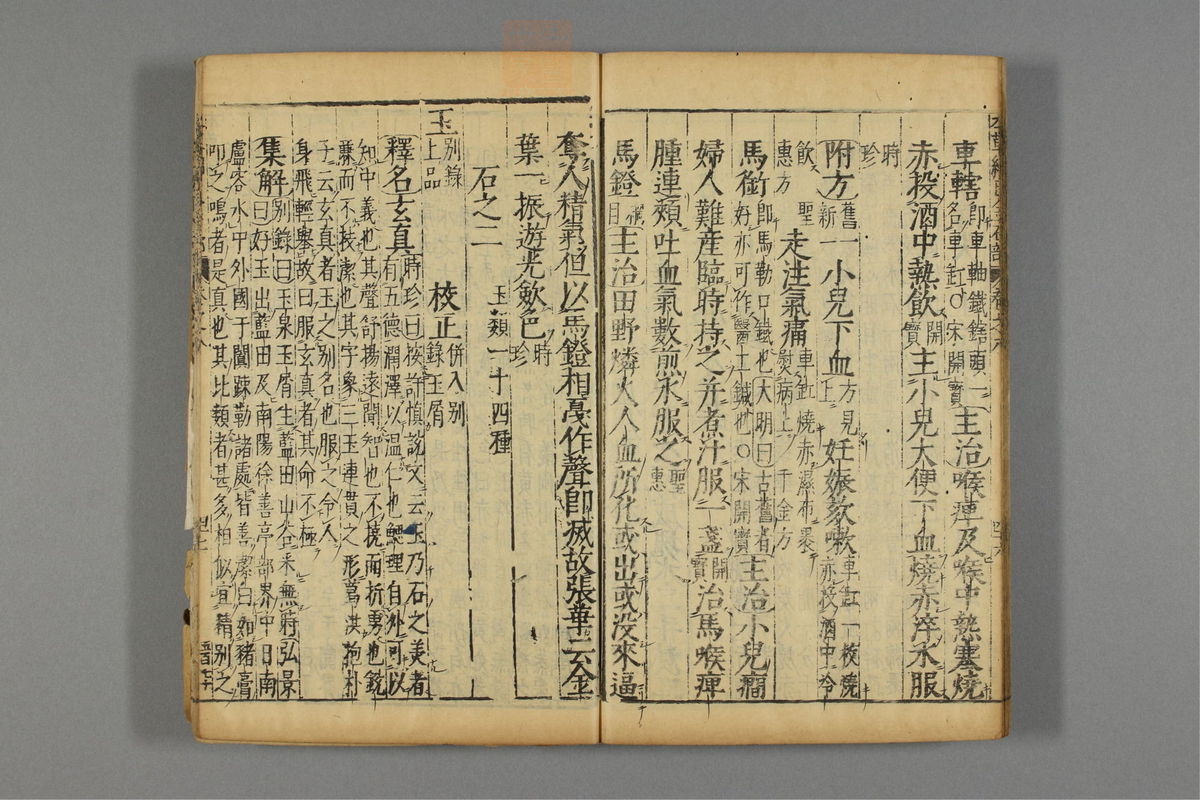 車轄即車軸鐵鎋頭一名車缸○宋開寶主治喉痺及喉中熱塞燒
赤投酒中熱飲開寶主小兒大便下血燒赤淬水服
時珍
附方舊一新一小兒下血方見上妊娠欬嗽車缸一枚燒赤投酒中冷
飲聖惠方走注氣痛車缸燒赤濕布裹熨病上千金方
馬銜即馬勒口鐵也大明曰古舊者好亦可作醫工鍼也○宋開寶主治小兒癇
婦人難產臨時持之并煮汁服一盞開寶治馬喉痺
腫連頰吐血氣數煎水服之聖惠
馬鐙綱目主治田野燐火人血所化或出或没來逼
奪人精氣但以馬鐙相戛作聲即滅故張華云金
葉一振遊光斂色時珍
石之二玉類一十四種
玉別錄上品校正併入別錄玉屑
釋名玄真時珍曰按許慎說文云玉乃石之美者
有五德潤澤以溫仁也䚡理自外可以
知中義也其聲舒揚遠聞智也不撓而折勇也銳
廉而不技潔也其字象三玉連貫之形葛洪抱朴
子云玄真者玉之別名也服之令人
身飛輕舉故曰服玄真者其命不極
集解別錄曰玉泉玉屑生藍田山谷采無時弘景
曰好玉出藍田及南陽徐善亭部界中日南
盧容水中外國于闐疎勒諸處皆善潔白如猪膏
叩之鳴者是真也其比類者甚多相似宜精別之